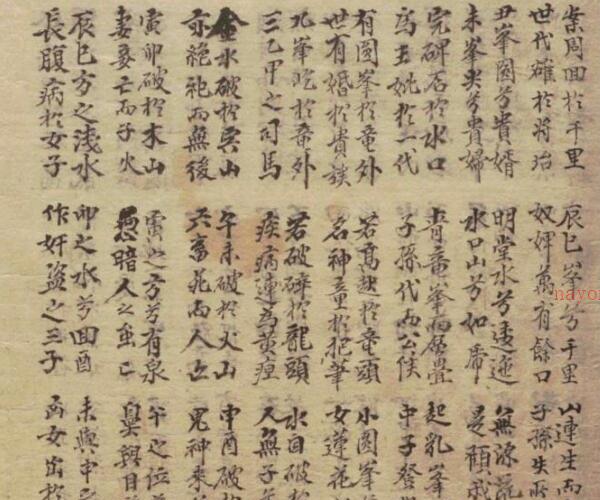 案周回於千里 辰巳峯兮千里 山連生而
世代雄於將治 奴婢萬有餘口 子孫失
丑峯圓兮貴婿 明堂水兮逶迤 無源流
未峯尖兮貴婦 水口山兮如帶 是顛
完碑石於水口 青竜峯而層疊 起乳峯
為王於一代 子孫代而公侯 中子登
有圓峯於竜外 若高起於竜頭 小圓峯
世有婚於貴族 名神童於把筆 女蓮花
北峯於竜外 若破碎於龍頭 水自破
三乙甲之司馬 疾病連為黄疸 人無子
金水破於巽山 午未破於火山 申酉破
亦絶祀而無後 六畜死而人亡 鬼神來
寅卯破於木山 之方兮有泉 午之位
妻妾亡而子火 愚暗人之亡 與
辰巳方之淺水 卯之水兮回酉 未與申之
長腹病於女子 作奸盗之三子 而女出於
nayo